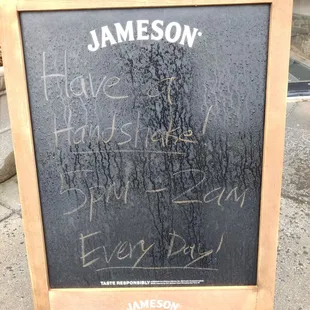 JAMESON
Have a
Handshake!
5pm - 2am
Every Day!
TASTE RESPONSIBLY.
JAMESON